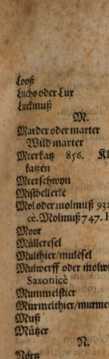 Looß
Luchs oder Lux
Luckmuß
M.
Marder oder marter
Wild marter
Meerkatz 856.
katzen
Meerschwyn
Mistbellerle
Mol oder molmuß
ce. Molmuß 747.
Moor
Mülleresel
Multhier/mulesel
Mulwerff oder
Saxonicè
Mummelthier
Murmelthier/
Muß
Mützer
N.
Nörn